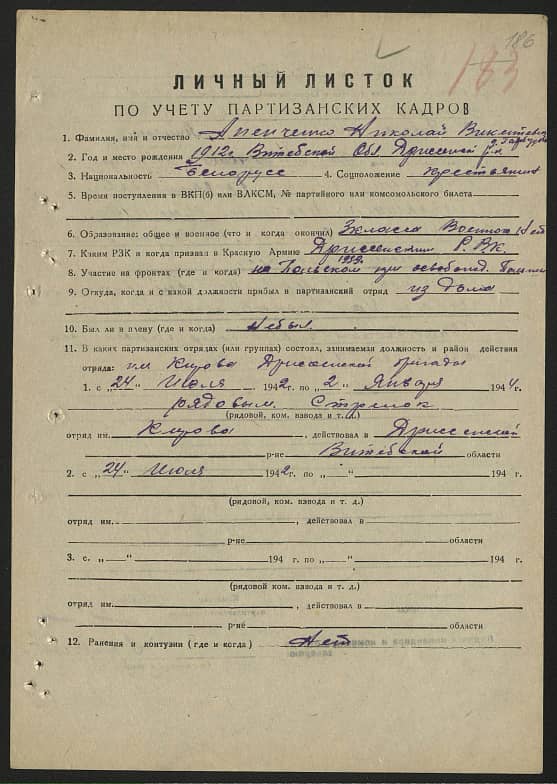 186
183
ЛИЧНЫЙ ЛИСТОК
ПО УЧЕТУ ПАРТИЗАНСКИХ КАДРОВ
1. Фамилия, имя и отчество Николай
2. Год и место рождения 1912г Витебской Обл Дриссенский р-н
3. Национальность Белорусс 4. Соцположение крестьянин
5. Время поступления в ВКП(б) или ВЛКСМ, № партийного или комсомольского билета
6. Образование: общее и военное (что и когда окончил) 3 класса Военное Нет
7. Каким РЗК и когда призван в Красную Армию Дриссенским Р.В.К.
8. Участие на фронтах (где и когда) на Польском при освобожд. 1939
9. Откуда, когда и с какой должности прибыл в партизанский отряд из дома
10. Был ли в плену (где и когда) Небыл
11. В каких партизанских отрядах (или группах) состоял, занимаемая должность и район действия
отряда: им Кирова Дриссенской бригады
1. с „24“ Июля 1942г. по „2“ Января 1944г.
рядовым. Стрелок
(рядовой, ком. взвода и т. д.)
отряд им. Кирова, действовал в Дриссенской
р-не Витебской области
2. с „24“ Июля 1942г. по „ “ 194 г.
(рядовой, ком. взвода и т. д.)
отряд им. , действовал в
р-не области
3. с. „ “ 194 г. по „ “ 194 г.
(рядовой ком. взвода и т. д.)
отряд им. , действовал в
р-не области
12. Ранения и контузии (где и когда) Нет